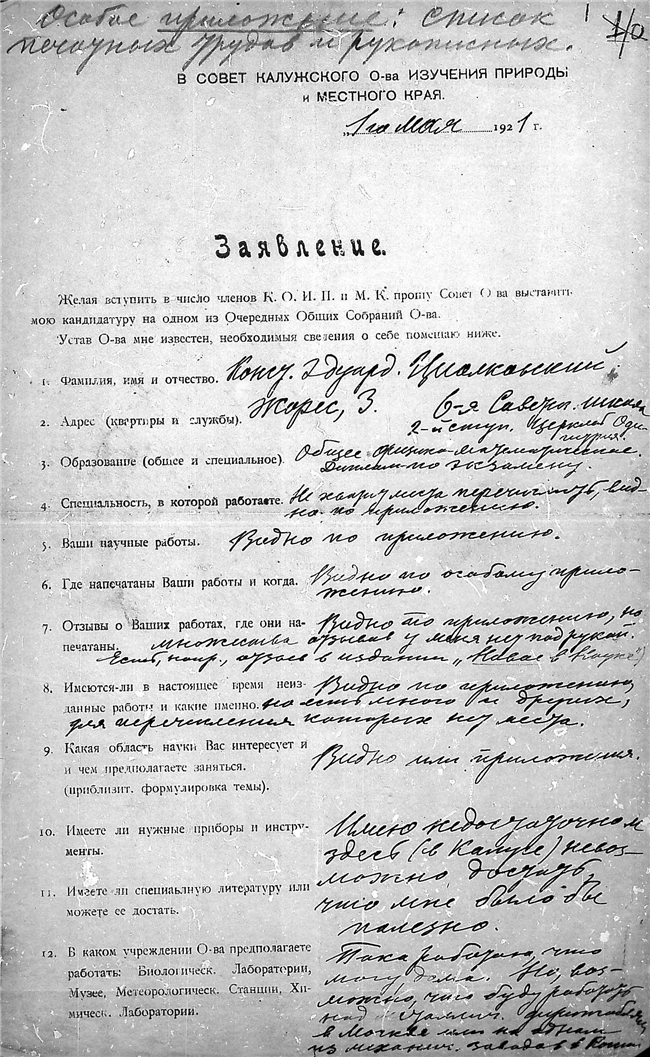 Особое приложение: список
печатных трудов и рукописных.
В СОВЕТ КАЛУЖСКОГО О-ва ИЗУЧЕНИЯ ПРИРОДЫ
и МЕСТНОГО КРАЯ.
„1го мая 1921 г.
Заявление.
Желая вступить в число членов К. О. И. П. и М. К. прошу Совет О ва выставить
мою кандидатуру на одном из Очередных Общих Собраний О-ва.
Устав О-ва мне известен, необходимыя сведения о себе помещаю ниже.
1. Фамилия, имя и отчество. Конст. Эдуард. Циолковский
2. Адрес (квартиры и службы). Жорес, 3. 6-я Советск. школа
2-й ступ. Церковь Оди-
гитрия.
3. Образование (общее и специальное). Общее физико-математическое.
Диплом по экзамену.
4. Специальность, в которой работаете. Не хватит места перечислить, вид-
но по приложению.
5. Ваши научные работы. Видно по приложению.
6. Где напечатаны Ваши работы и когда. Видно по особому прило-
жению.
7. Отзывы о Ваших работах, где они на- Видно по приложению, но
печатаны. множества отзывов у меня нет под рукой.
Есть, напр., отзыв в издании „Новое в Науке")
8. Имеются-ли в настоящее время неиз- Видно по приложению,
данные работы и какие именно. но есть много и других,
для перечисления которых нет места.
9. Какая область науки Вас интересует и
и чем предполагаете заняться. Видно из приложения.
(приблизит. формулировка темы).
10. Имеете ли нужные приборы и инстру- Имею недостаточно
менты. здесь (в Калуге) невоз-
можно достать,
11. Имеете ли специальную литературу или что мне было бы
можете ее достать. полезно.
12. В каком учреждении О-ва предполагаете Пока работаю, что
работать: Биологическ. Лаборатории, могу дома. Но, воз-
Музее, Метеорологическ. Станции, Хи- можно, что буду работать
мическ. Лаборатории. над металлич. дирижаблем
в Москве или на одном
из механич. заводов в